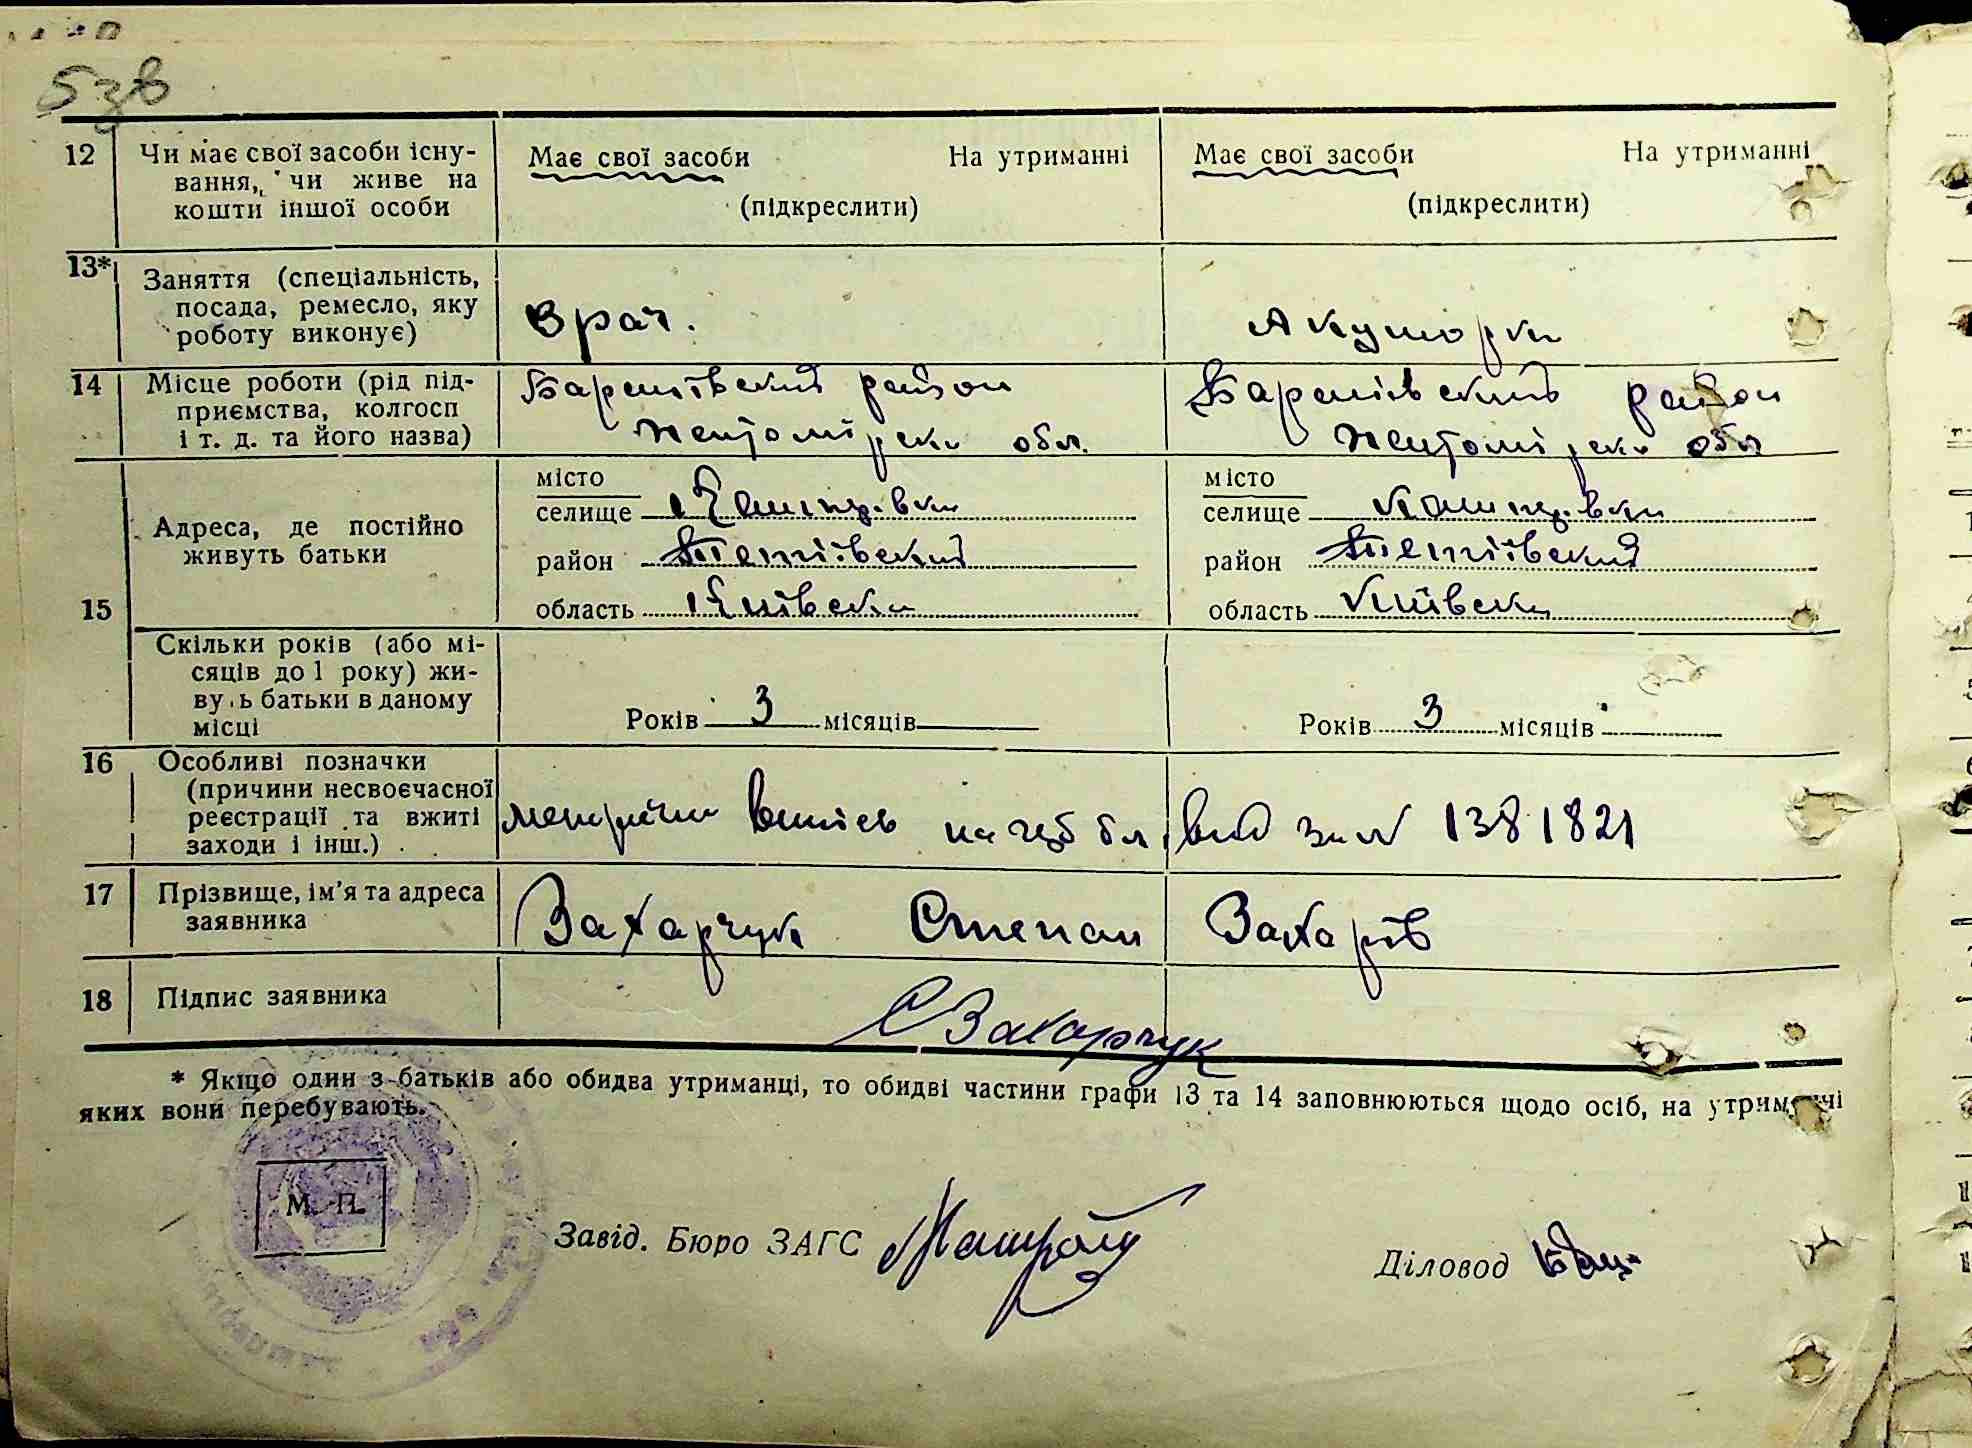 5зв
12 Чи має свої засоби існу- Має свої засоби На утриманні Має свої засоби На утриманні
вання, чи живе на
кошти іншої особи (підкреслити) (підкреслити)
13* Заняття (спеціальність,
посада, ремесло, яку Врач. Акушорка
роботу виконує)
14 Місце роботи (рід під- Баранівський район Баранівський район
приємства, колгосп Житомірська обл. Житомірська обл
і т. д. та його назва)
місто місто
Адреса, де постійно селище Кашперівка селище Кашперівка
живуть батьки район Тетіївський район Тетіївський
15 область Київська область Київська
Скільки років (або мі-
сяців до 1 року) жи-
ву ь батьки в даному Років 3 місяців Років 3 місяців
місці
16 Особливі позначки
(причини несвоєчасної
реєстрації та вжиті метрічна випись на бл. вид за № 1381821
заходи і інш.)
17 Прізвище, ім'я та адреса Захарчук Степан Захарів
заявника
18 Підпис заявника СЗахарчук
* Якщо один з батьків або обидва утриманці, то обидві частини графи 13 та 14 заповнюються щодо осіб, на утриманні
яких вони перебувають.
М. П.
Завід. Бюро ЗАГС
Діловод